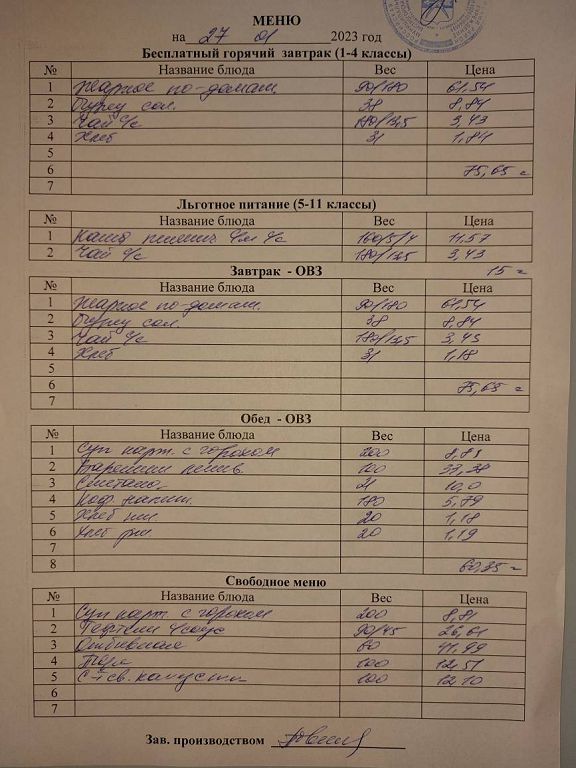 МЕНЮ
на 27 01 2023 год
Бесплатный горячий завтрак (1-4 классы)
№ Название блюда Вес Цена
1 Жаркое по-домаш. 90/180 61,54
2 Огурец сол. 38 8,84
3 Чай с/с 180/12,5 3,43
4 Хлеб 31 1,84
5
6 75,65
7
Льготное питание (5-11 классы)
№ Название блюда Вес Цена
1 Каша пшенич 160/5/4 11,57
2 Чай с/с 180/12,5 3,43
15
Завтрак - ОВЗ
№ Название блюда Вес Цена
1 Жаркое по-домаш. 90/180 61,54
2 Огурец сол. 38 8,84
3 Чай с/с 180/12,5 3,43
4 Хлеб 31 1,18
5
6 75,65
7
Обед - ОВЗ
№ Название блюда Вес Цена
1 Суп карт. с горохом 200 8,81
2 Вареники 100 33,38
3 Сметана 21 10,0
4 Коф. напит. 180 5,79
5 Хлеб пш. 20 1,18
6 Хлеб рж 20 1,19
7
8 60,35
Свободное меню
№ Название блюда Вес Цена
1 Суп карт. с горохом 200 8,81
2 Тефтели с/соус 90/45 26,61
3 Отбивная 60 41,99
4 100 12,51
5 св. капусты 100 12,10
6
7
Зав. производством